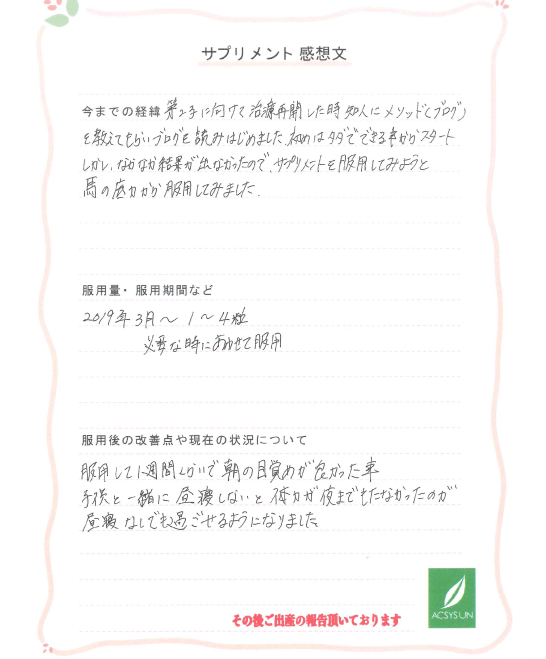 サプリメント 感想文
今までの経緯 第2子に向けて治療再開した時知人にメソッド(ブログ)
を教えてもらいブログを読みはじめました。初めはタダでできる事からスタート
しかし、なかなか結果が出なかったので、サプリメントを服用してみようと
馬の底力から服用してみました。
服用量・服用期間など
2019年3月〜 1〜4粒
必要な時にあわせて服用
服用後の改善点や現在の状況について
服用して1週間くらいで朝の目覚めが良かった事
子供と一緒に昼寝しないと体力が夜までもたなかったのが
昼寝なしでも過ごせるようになりました
ACSYSUN
その後ご出産の報告頂いております